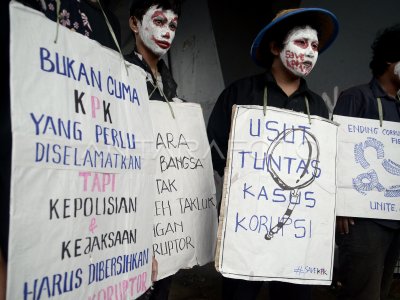 BUKAN CUMA
KPK
YANG PERLU
DISELAMATKAN
TAPI
KEPOLISIAN
&
KEJAKSAAN
HARUS DIBERSIHKAN
KORUPTOR
ARA
BANGSA
TAK
EH TAKLUK
NGAN
RUPTOR
SAVE
USUT
TUNTAS
KASUS
KORUPSI
#SAVEKPK
ENDING
UNITE